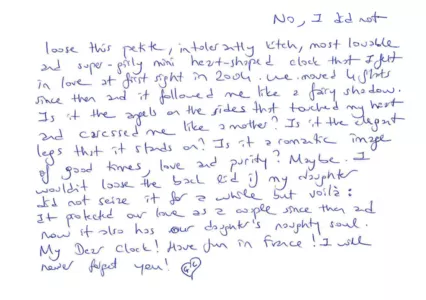 No, I did not
loose this petite, intolerantly kitch, most lovable
and super-girly mini heart-shaped clock that I felt
in love at first sight in 2004. We moved 4 flats
since then and it followed me like a fairy shadow.
Is it the angels on the sides that touched my heart
and caressed me like a mother? Is it the elegant
legs that it stands on? Is it a romantic image
of good times, love and purity? Maybe. I
wouldn't loose the back lid if my daughter
did not seize it for a while but voilà:
It protected our love as a couple since then and
now it also has our daughter's naughty soul.
My Dear Clock! Have fun in France! I will
never forget you!